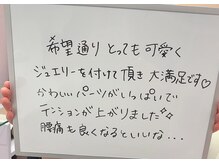 希望通り とっても可愛く
ジュエリーを付けて頂き 大満足です♡
かわいいパーツがいっぱいで
テンションが上がりました✨
腰痛も良くなるといいな…